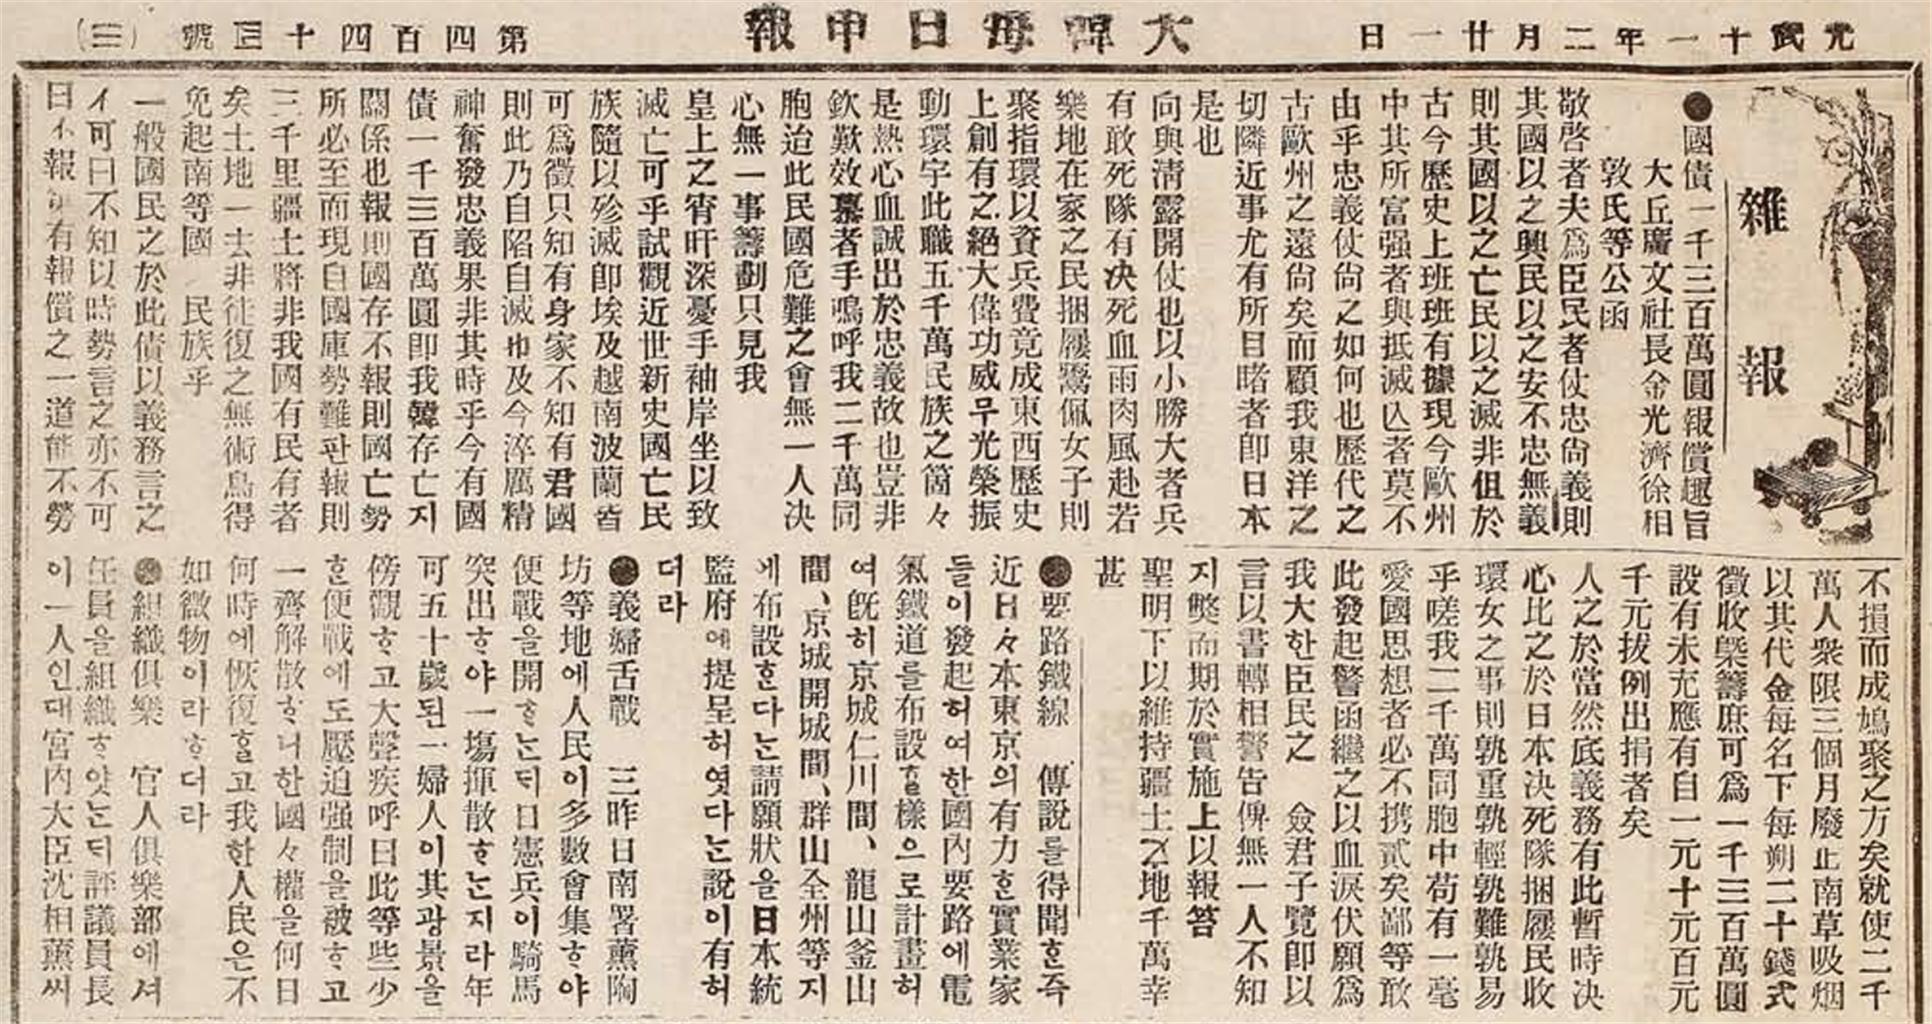 光武十一年二月廿一日
大韓每日申報
第四百四十三號
(三)
雜報
●國債一千三百萬圓報償趣旨
大丘廣文社長金光濟徐相
敦氏等公函
敬啓者夫爲臣民者仗忠尙義則
其國以之興民以之安不忠無義
則其國以之亡民以之滅非但於
古今歷史上班班有據現今歐州
中其所富强者與抵滅亡者莫不
由乎忠義仗尙之如何也歷代之
古歐州之遠尙矣而顧我東洋之
切隣近事尤有所目睹者卽日本
是也
向與淸露開仗也以小勝大者兵
有敢死隊有决死血雨肉風赴若
樂地在家之民捆屨鬻佩女子則
聚指環以資兵費竟成東西歷史
上創有之絕大偉功威무光榮振
動環宇此職五千萬民族之箇々
是熱心血誠出於忠義故也豈非
欽歎效慕者乎嗚呼我二千萬同
胞迨此民國危難之會無一人决
心無一事籌劃只見我
皇上之宵旰深憂手袖岸坐以致
滅亡可乎試觀近世新史國亡民
族隨以殄滅卽埃及越南波蘭皆
可爲徵只知有身家不知有君國
則此乃自陷自滅也及今淬厲精
神奮發忠義果非其時乎今有國
債一千三百萬圓卽我韓存亡지
關係也報則國存不報則國亡勢
所必至而現自國庫勢難판報則
三千里疆土將非我國有民有者
矣土地一去非徒復之無術烏得
免起南等國 民族乎
一般國民之於此債以義務言之
不可曰不知以時勢言之亦不可
曰不報 有報償之一道能不勞
不損而成鳩聚之方矣就使二千
萬人衆限三個月廢止南草吸烟
以其代金每名下每朔二十錢式
徵收槩籌庶可爲一千三百萬圓
設有未充應有自一元十元百元
千元拔例出捐者矣
人之於當然底義務有此暫時决
心比之於日本决死隊捆屨民收
環女之事則孰重孰輕孰難孰易
乎嗟我二千萬同胞中苟有一毫
愛國思想者必不携貳矣鄙等敢
此發起警函繼之以血淚伏願爲
我大한臣民之 僉君子覽卽以
言以書轉相警告俾無一人不知
지獘而期於實施上以報答
聖明下以維持疆土之地千萬幸
甚
●要路鐵線 傳說를得聞ᄒᆞᆫ즉
近日々本東京의有力ᄒᆞᆫ實業家
들이發起허여한國內要路에電
氣鐵道를布設ᄒᆞᆯ樣으로計畫허
여旣히京城仁川間、龍山釜山
間、京城開城間、群山全州等지
에布設ᄒᆞᆫ다ᄂᆞᆫ請願狀을日本統
監府에提呈허엿다ᄂᆞᆫ說이有허
더라
●義婦舌戰 三昨日南署薰陶
坊等地에人民이多數會集ᄒᆞ야
便戰을開ᄒᆞᄂᆞᆫ딕日憲兵이騎馬
突出ᄒᆞ야一塲揮散ᄒᆞᄂᆞᆫ지라年
可五十歲된一婦人이其광景을
傍觀ᄒᆞ고大聲疾呼曰此等些少
ᄒᆞᆫ便戰에도壓迫强制을被ᄒᆞ고
一齊解散ᄒᆞ니한國々權을何日
何時에恢復ᄒᆞᆯ고我한人民은不
如微物이라ᄒᆞ더라
●組織俱樂 官人俱樂部에셔
任員을組織ᄒᆞ얏ᄂᆞᆫᄃᆡ評議員長
이一人인대宮內大臣沈相薰씨